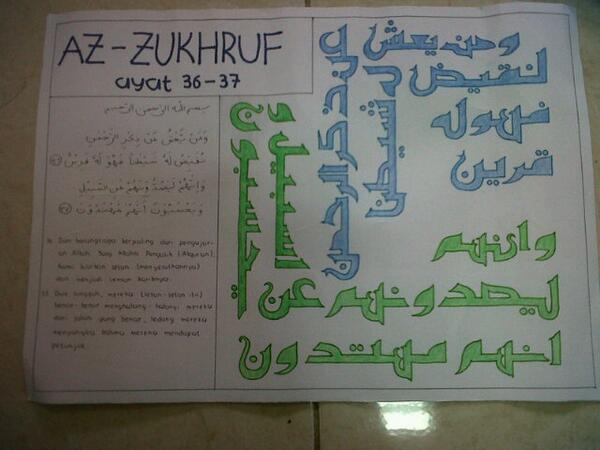 AZ-ZUKHRUF
ayat 36-37
بسم الله الرحمن الرحيم
وَمَنْ يَعْشُ عَنْ ذِكْرِ الرَّحْمٰنِ
نُقَيِّضْ لَهُ شَيْطٰنًا فَهُوَ لَهُ قَرِيْنٌ ٣٦
وَاِنَّهُمْ لَيَصُدُّوْنَهُمْ عَنِ السَّبِيْلِ
وَيَحْسَبُوْنَ اَنَّهُمْ مُّهْتَدُوْنَ ٣٧
36. Dan barangsiapa berpaling dari pengajar-
an Allah Yang Maha Pengasih (Alquran),
Kami biarkan setan (menyesatkannya)
dan menjadi teman karibnya.
37. Dan sungguh, mereka (setan-setan itu)
benar-benar menghalang-halangi mereka
dari jalan yang benar, sedang mereka
menyangka bahwa mereka mendapat
petunjuk
ومن يعش
عن ذكر الرحمن
نقيض
له شيطنا
فهو له
قرين
وانهم
ليصدونهم عن
السبيل و
يحسبون
انهم مهتدون